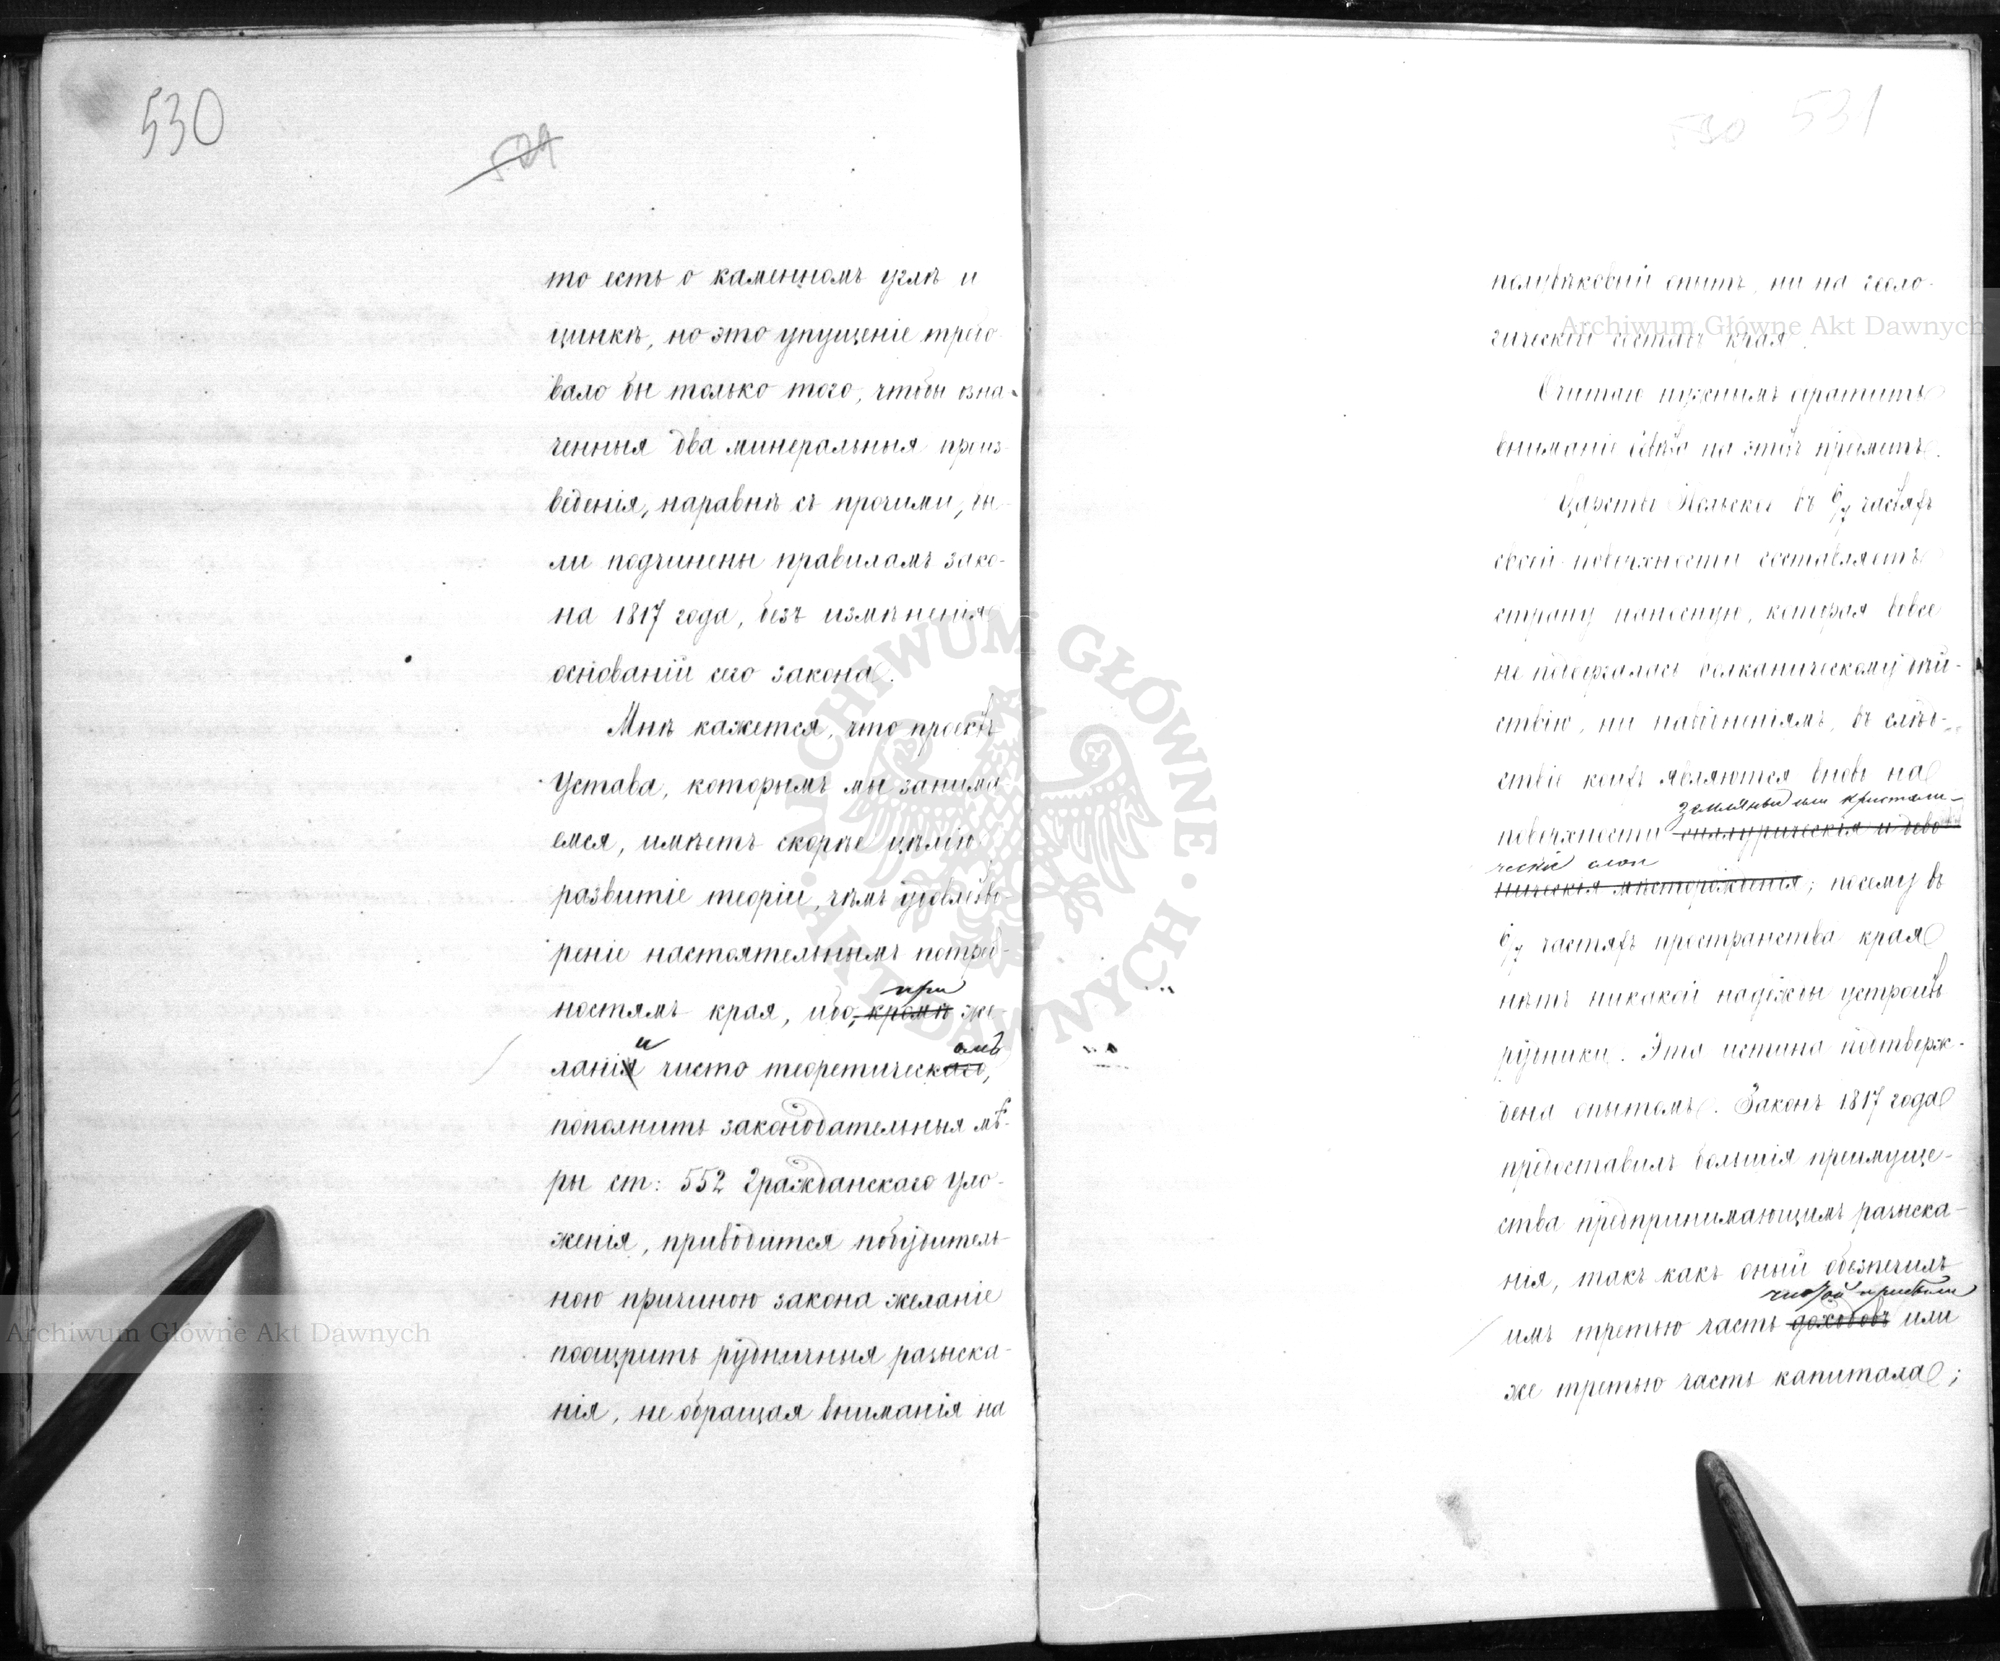 530
529
то есть о каменномъ углѣ и
цинкѣ, но это упущеніе требо-
вало бы только того, чтобы озна-
ченныя два минеральныя произ-
веденія, наравнѣ съ прочими, бы-
ли подчинены правиламъ зако-
на 1817 года, безъ измѣненія
основаній сего закона.
Мнѣ кажется, что проектъ
Устава, которымъ мы занима-
емся, имѣетъ скорѣе цѣлію
развитіе теоріи, чѣмъ удовлетво-
реніе настоятельнымъ потреб-
при
ностямъ края, ибо, кромѣ же-
и омъ
ланія чисто теоретическаго,
пополнить законодательныя мѣ-
ры ст: 552 Гражданскаго уло-
женія, приводится побудитель-
ною причиною закона желаніе
поощрить рудничныя разыска-
нія, не обращая вниманія на
530 531
полувѣковый опытъ, ни на геоло-
гическій составъ края.
Считаю нужнымъ обратить
вниманіе на этотъ предметъ.
Царство Польское въ 6/7 частяхъ
своей поверхности составляетъ
страну наносную, которая вовсе
не подвергалась волканическому дѣй-
ствію, ни въ слѣд-
ствіе коихъ являются вновь на
земляные или кристали-
поверхности силлурическія и дево-
ческіе слои
ническія мѣсторожденія; посему въ
6/7 частяхъ пространства края
нѣтъ никакой надежды устроить
рудники. Эта истина подтверж-
дена опытомъ. Законъ 1817 года
представилъ большія преимуще-
ства предпринимающимъ разыска-
нія, такъ какъ оный обезпечилъ
чистой прибыли
имъ третью часть доходовъ или
же третью часть капитала;
Archiwum Główne Akt Dawnych
Archiwum Główne Akt Dawnych
ARCHIWUM GŁÓWNE AKT DAWNYCH